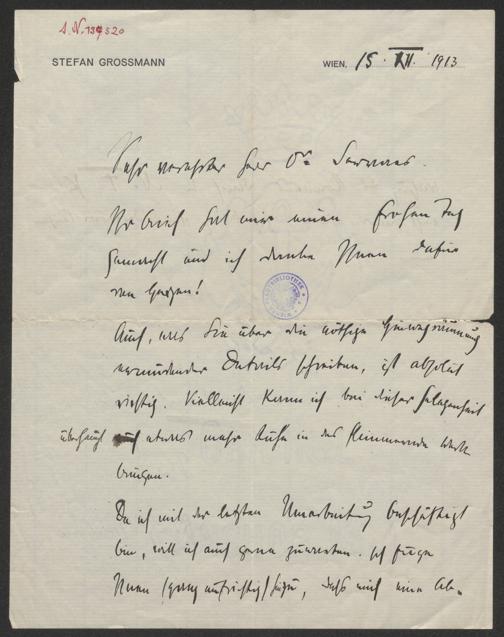 S.N. 137520
STEFAN GROSSMANN
WIEN, 15. XII. 1913
Sehr verehrter Herr Dr
Ihr Brief hat mir einen frohen Tag
gemacht und ich danke Ihnen dafür
von Herzen!
Auch, was Sie über die nötige
Details schreiben, ist absolut
richtig. Vielleicht kann ich bei dieser Gelegenheit
überhaupt etwas mehr Ruhe in das flimmernde Werk
bringen.
Da ich mit der letzten Umarbeitung beschäftigt
bin, will ich auch gerne zuwarten. Ich füge
Ihnen (ganz aufrichtig) hinzu, daß mich eine Ab-